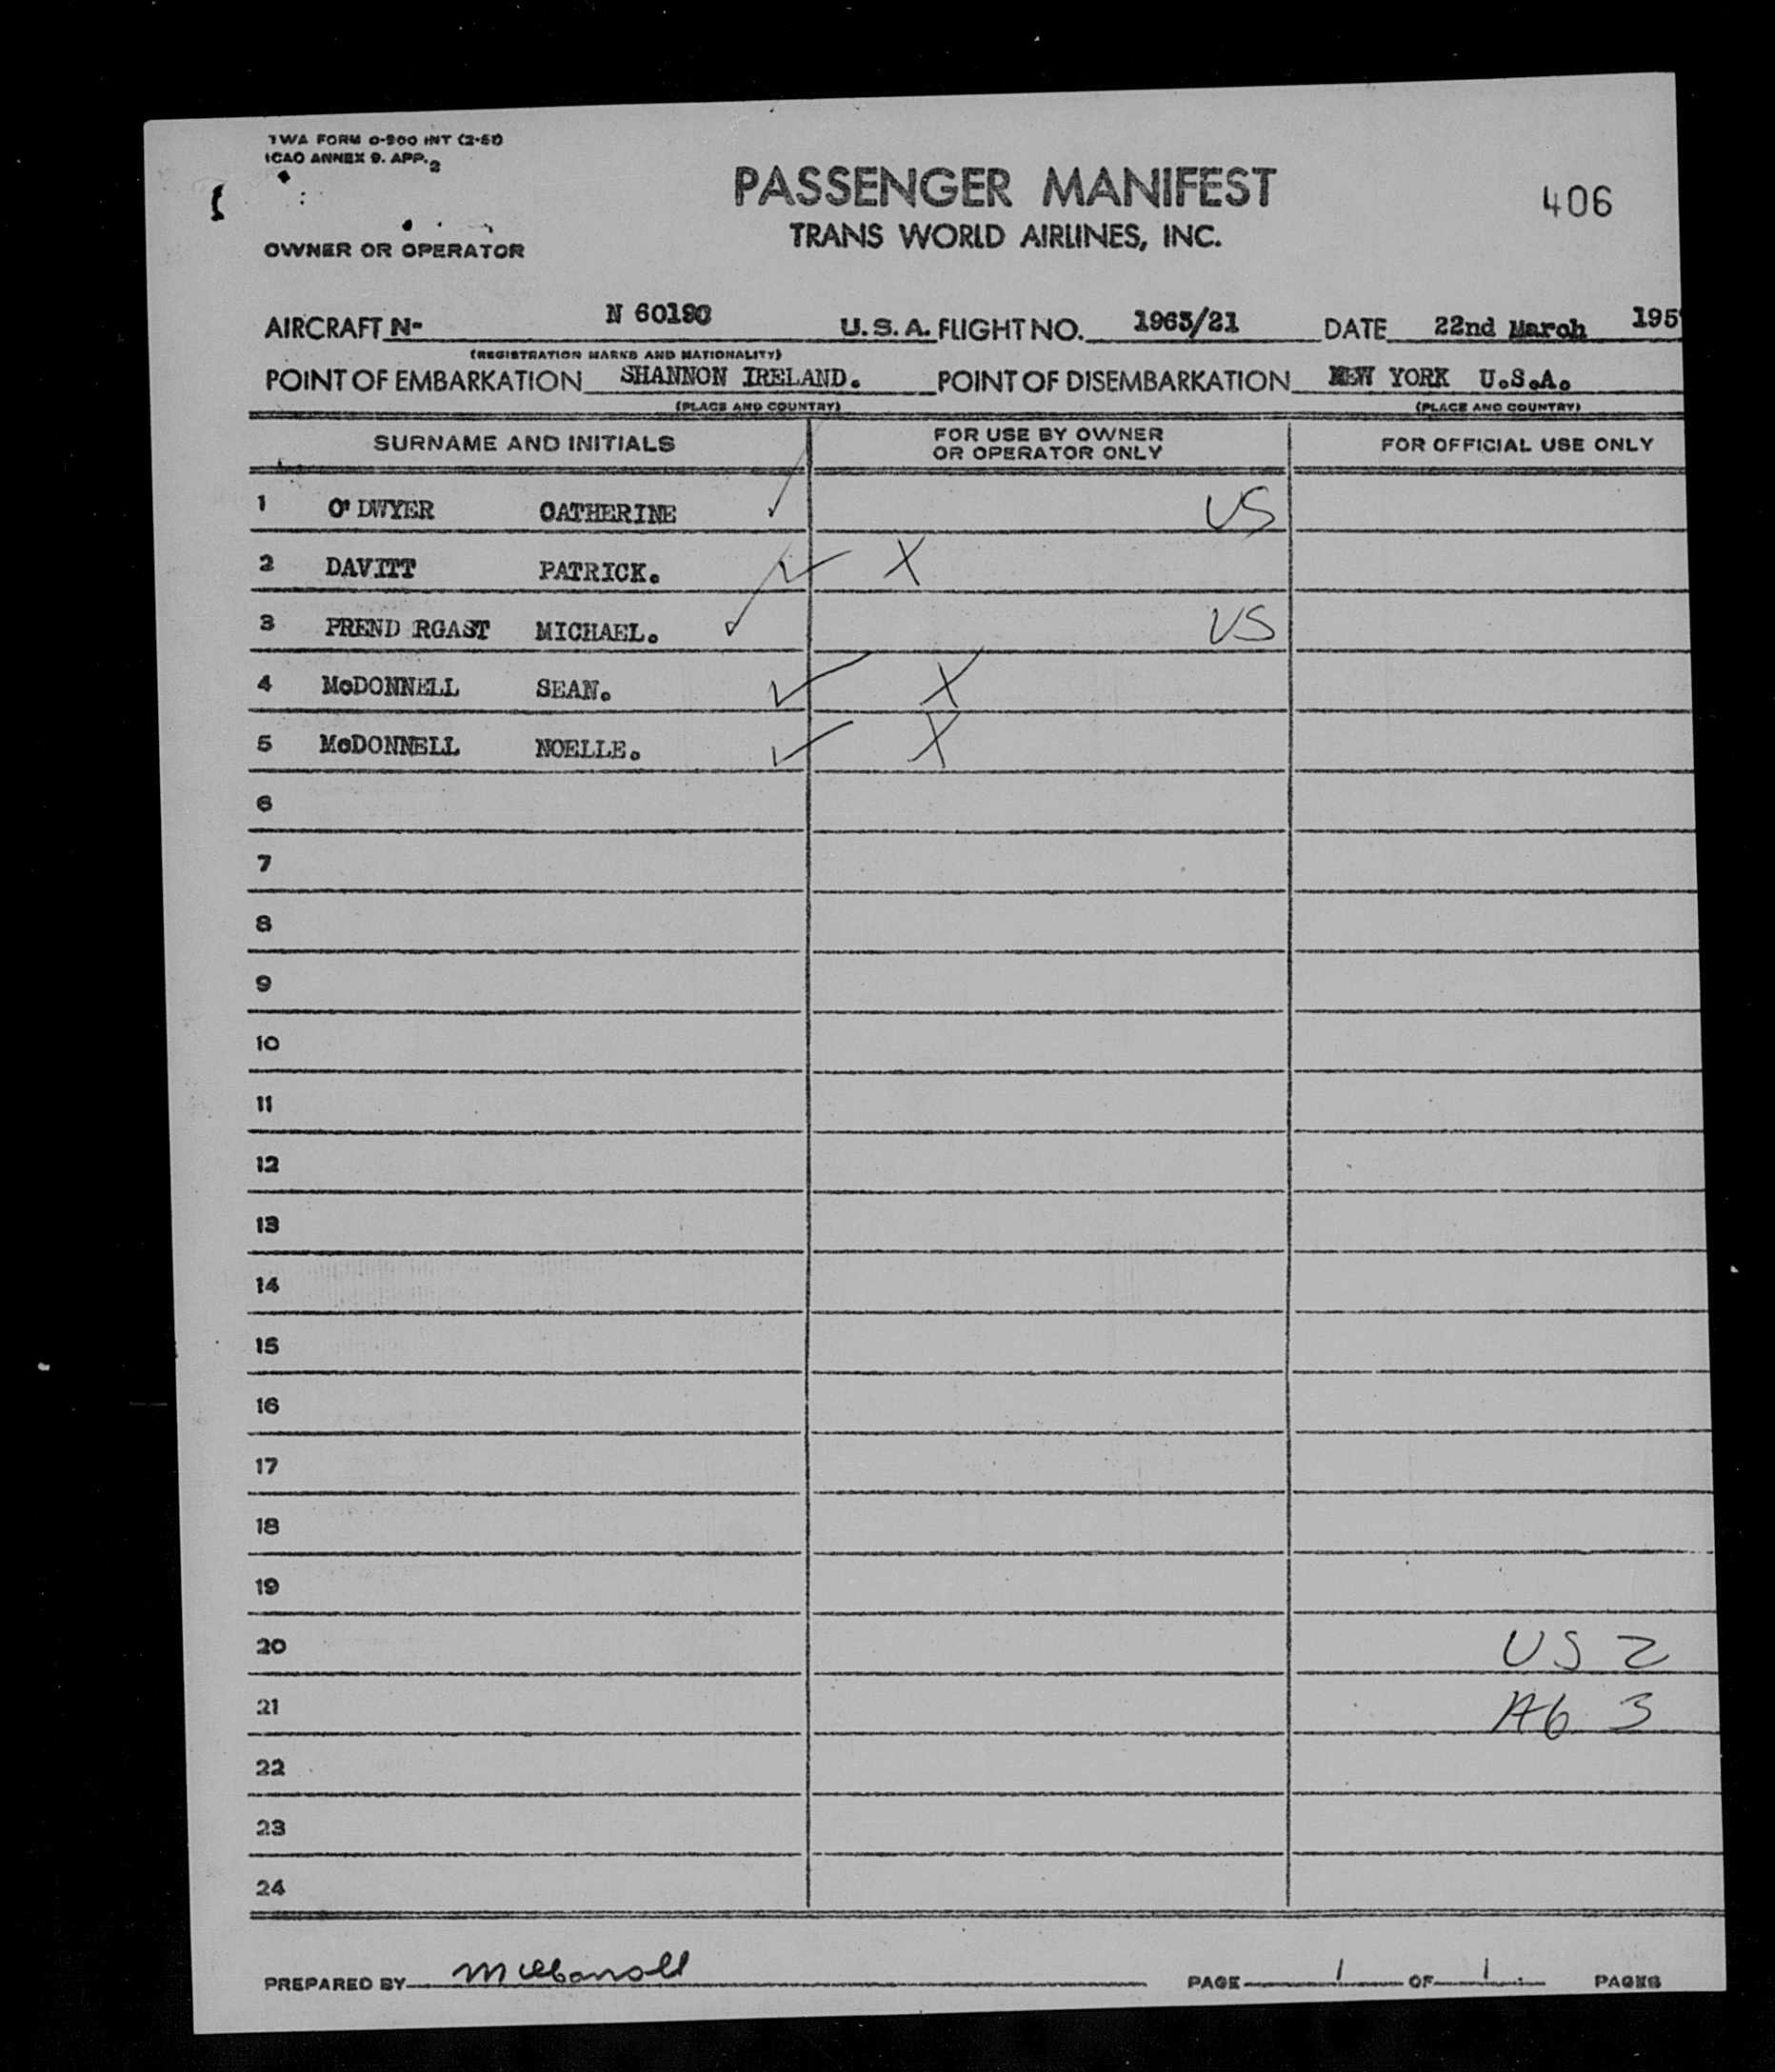 TWA FORM O-900 INT (2-51)
ICAO ANNEX 9. APP. 2
PASSENGER MANIFEST
406
TRANS WORLD AIRLINES, INC.
OWNER OR OPERATOR
AIRCRAFT N- N 60190 U.S.A. FLIGHT NO. 1963/21 DATE 22nd March 195
(REGISTRATION MARKS AND NATIONALITY)
POINT OF EMBARKATION SHANNON IRELAND. POINT OF DISEMBARKATION NEW YORK U.S.A.
(PLACE AND COUNTRY) (PLACE AND COUNTRY)
SURNAME AND INITIALS FOR USE BY OWNER OR OPERATOR ONLY FOR OFFICIAL USE ONLY
1 O'DWYER CATHERINE ✓ US
2 DAVITT PATRICK. ✓ X
3 PREND RGAST MICHAEL. ✓ US
4 McDONNELL SEAN. ✓ X
5 McDONNELL NOELLE. ✓ X
6
7
8
9
10
11
12
13
14
15
16
17
18
19
20 US 2
21 Ab 3
22
23
24
PREPARED BY PAGE 1 OF 1 PAGES